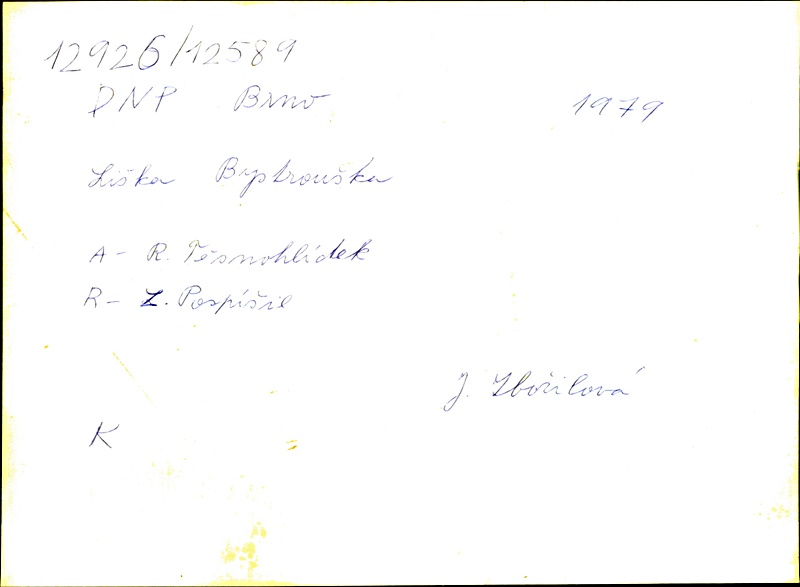 12926/12589
DNP Brno 1979
Liška Bystrouška
A - R. Těsnohlídek
R - Z. Pospíšil
J. Zbořilová
K